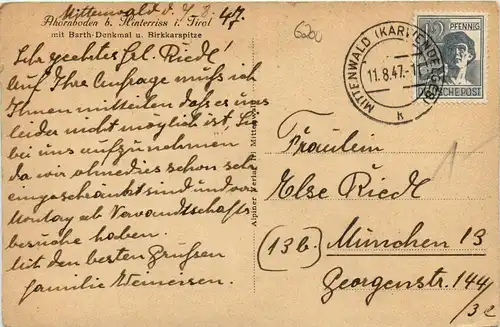 Mittenwald d. 9/8. 47.
Ahornboden b. Hinterriss i. Tirol
mit Barth-Denkmal u. Birkkarspitze
6200
Sehr geehrtes Frl. Riedl!
Auf Ihre Anfrage muß ich
Ihnen mitteilen daß es uns
leider nicht möglich ist, Sie
bei uns aufzunehmen
da wir ohnedies schon sehr
eingeschränkt sind und von
Montag ab Verwandtschafts
besuche haben.
Mit den besten Grüßen
Familie
Alpiner Verlag Mittenwald
MITTENWALD (KARWENDELGEB)
11.8.47.
k
12 PFENNIG
DEUTSCHE POST
Fräulein
Else Riedl
(13b.) München 13
Georgenstr. 144
/3